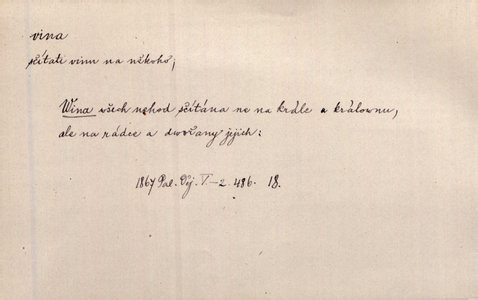 vina
sčítati vinu na někoho;
Wina wšech nehod sčítána ne na krále a králownu,
ale na rádce a dwořany jejich:
1867 Pal. Děj. V.-2. 486. 18.